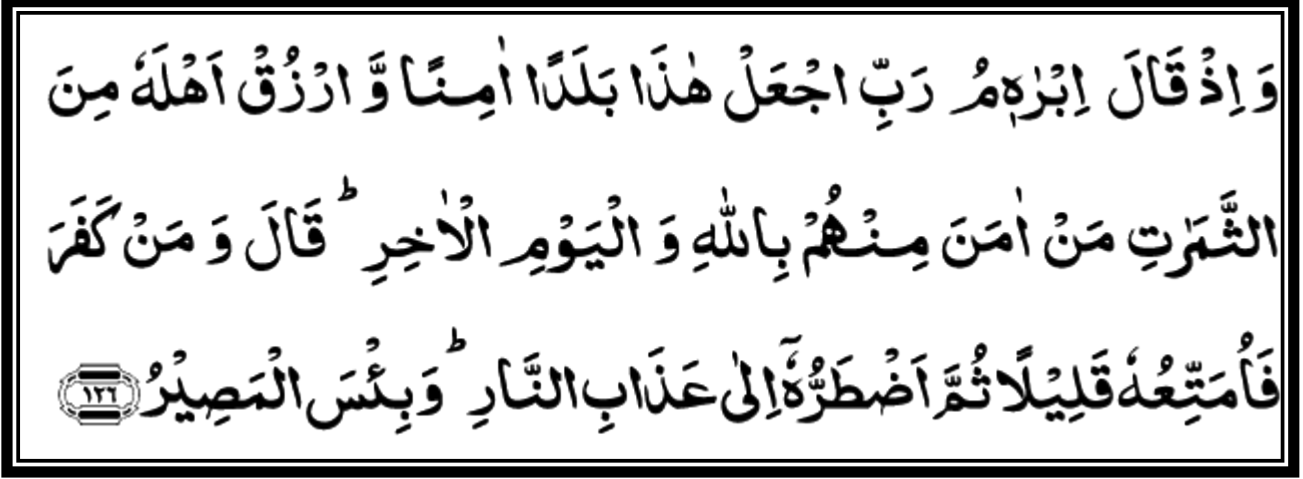 وَ اِذْ قَالَ اِبْرٰهٖمُ رَبِّ اجْعَلْ هٰذَا بَلَدًا اٰمِنًا وَّ ارْزُقْ اَهْلَهٗ مِنَ
الثَّمَرٰتِ مَنْ اٰمَنَ مِنْهُمْ بِاللّٰهِ وَ الْیَوْمِ الْاٰخِرِؕ قَالَ وَ مَنْ كَفَرَ
فَاُمَتِّعُهٗ قَلِیْلًا ثُمَّ اَضْطَرُّهٗۤ اِلٰى عَذَابِ النَّارِؕ وَ بِئْسَ الْمَصِیْرُ ۝۱۲۶